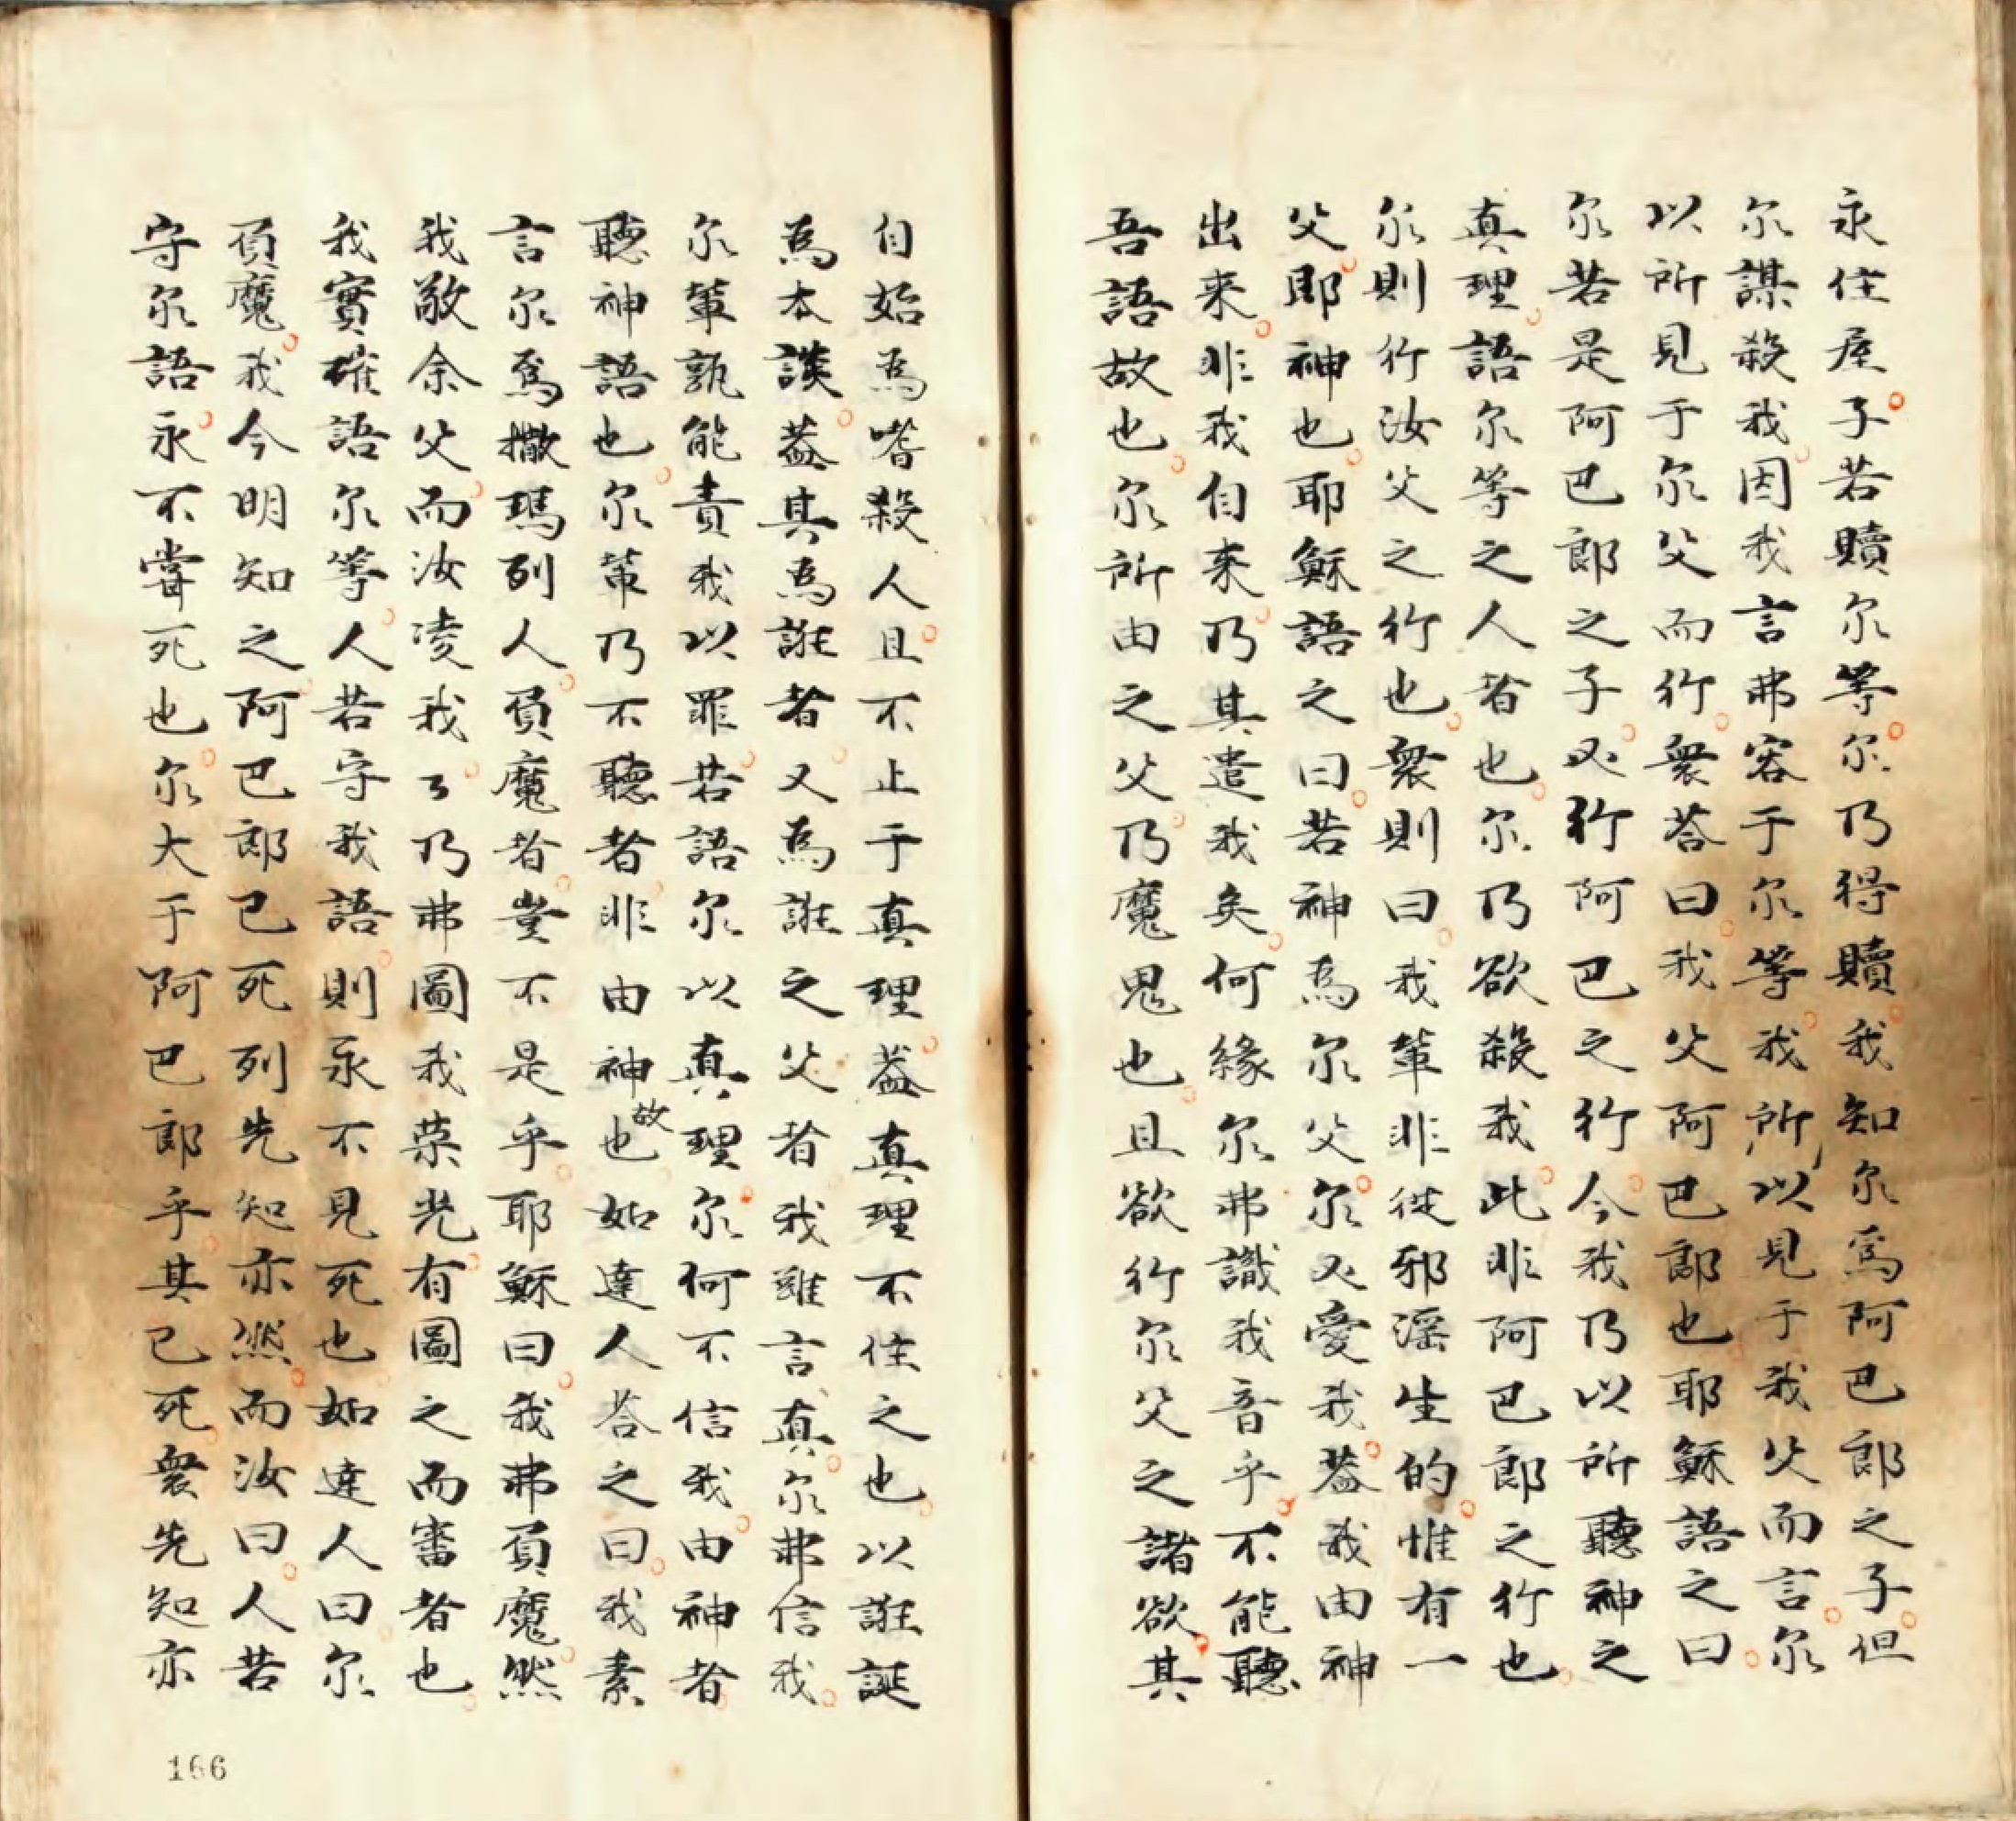 永住屋子若贖尔等尔乃得贖我知尔為阿巴郎之子但
尔謀殺我因我言弗容于尔等我所以見于我父而言尔
以所見于尔父而行衆荅曰我父阿巴郎也耶穌語之曰
尔若是阿巴郎之子必行阿巴之行今我乃以所聽神之
真理語尔等之人者也尔乃欲殺我此非阿巴郎之行也
尔則行汝父之行也衆則曰我輩非從邪滛生的惟有一
父即神也耶穌語之曰若神為尔父尔必愛我蓋我由神
出来非我自来乃其遣我矣何緣尔弗識我音乎不能聽
吾語故也尔所由之父乃魔鬼也且欲行尔父之諸欲其
自始為嗜殺人且不止于真理蓋真理不住之也以誑誕
為本談蓋其為誑者又為誑之父者我雖言真尔弗信我
尔輩孰能責我以罪若語尔以真理尔何不信我由神者
聽神語也尔輩乃不聽者非由神故也如達人荅之曰我素
言尔為撒瑪列人負魔者豈不是乎耶穌曰我弗負魔然
我敬余父而汝凌我々乃弗圖我榮光有圖之而審者也
我實確語尔等人若守我語則永不見死也如達人曰尔
負魔我今明知之阿巴郎已死列先知亦然而汝曰人若
守尔語永不嘗死也尔大于阿巴郎乎其已死衆先知亦
166